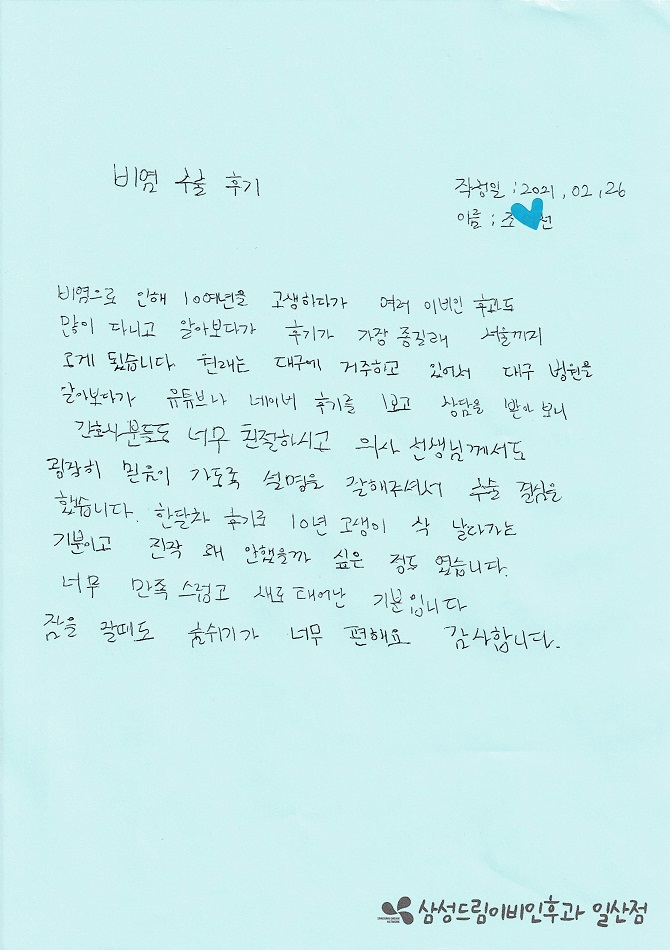 비염 수술 후기
작성일 : 2021, 02, 26
이름 ; 조 선
비염으로 인해 10여년을 고생하다가 여러 이비인 후과도
많이 다니고 알아보다가 후기가 가장 좋길래 서울까지
오게 됐습니다 현래는 대구에 거주하고 있어서 대구 병원을
알아보다가 유튜브나 네이버 후기를 보고 상담을 받아 보니
간호사분들도 너무 친절하시고 의사 선생님께서도
굉장히 믿음이 가도록 설명을 잘해주셔서 수술 결심을
했습니다. 한달차 후기로 10년 고생이 싹 날라가는
기분이고 진작 왜 안했을까 싶은 정도 였습니다.
너무 만족 스럽고 새로 태어난 기분입니다
잠을 잘때도 숨쉬기가 너무 편해요 감사합니다.
삼성드림이비인후과 일산점